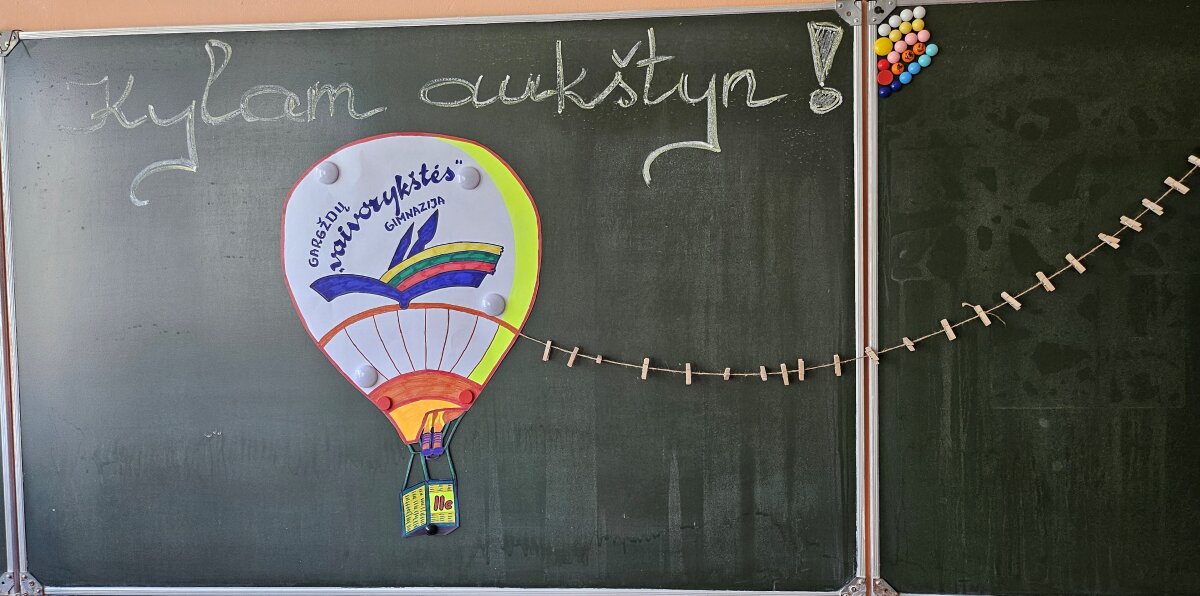 Kylam aukštyn!
GARGŽDŲ
„vaivorykštės“
GIMNAZIJA
IIc